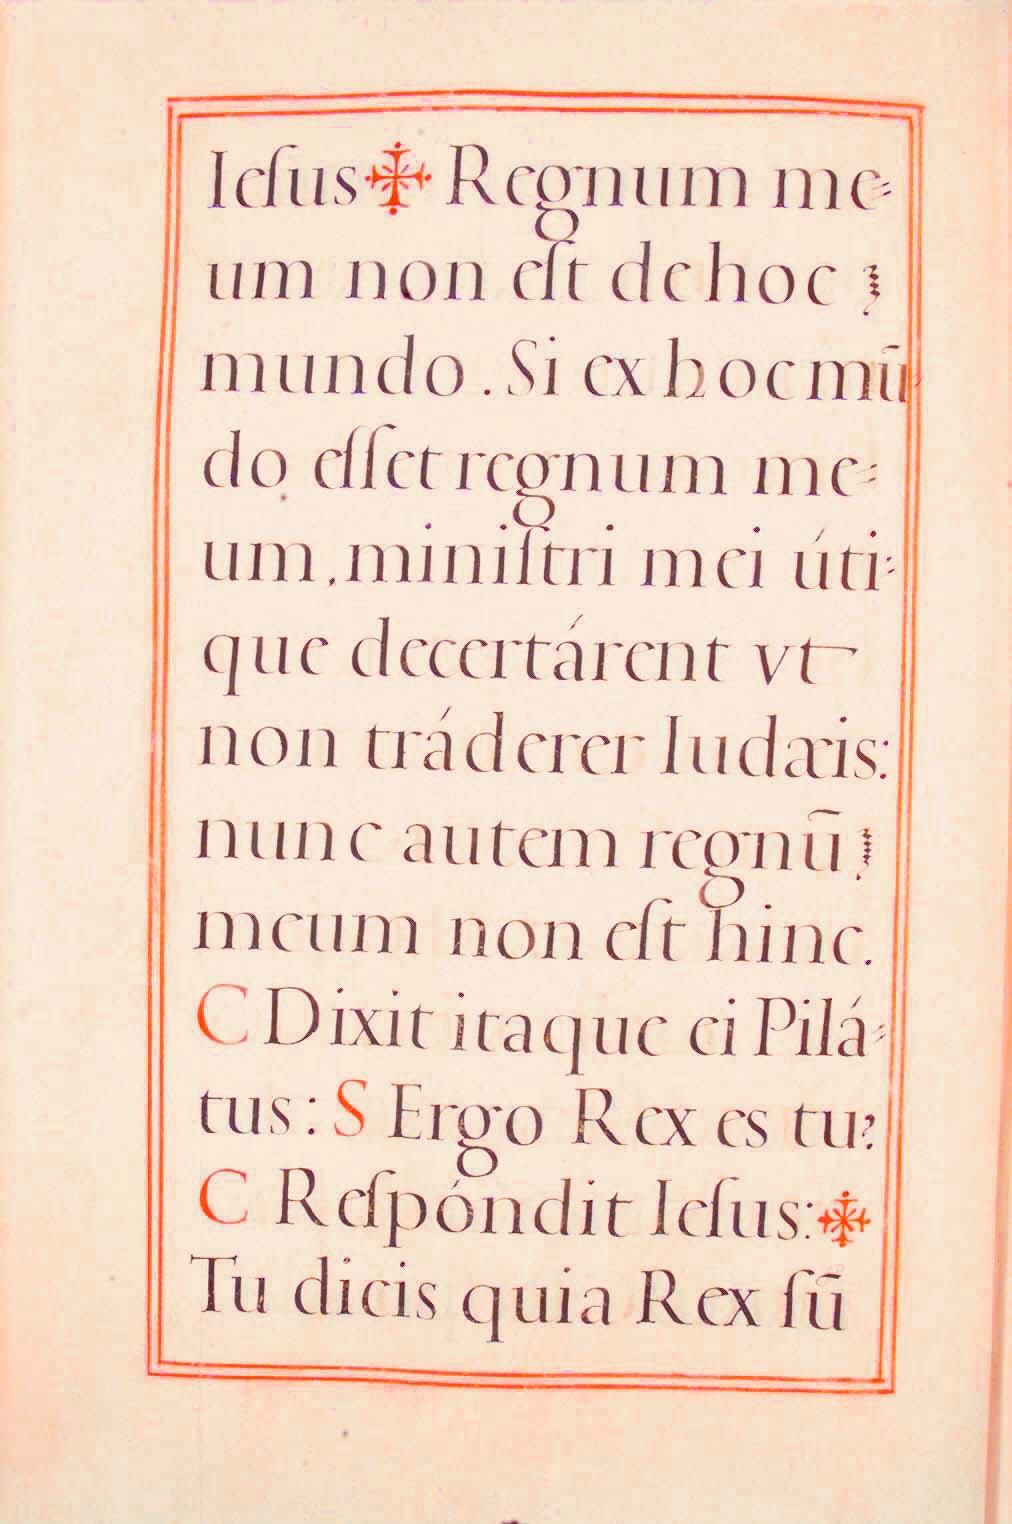 Ieſus ✠ Regnum me-
um non eſt de hoc
mundo. Si ex hoc mū-
do eſſet regnum me-
um, miniſtri mei úti-
que decertárent vt
non tráderer Iudæis:
nunc autem regnū
meum non eſt hinc.
C Dixit itaque ei Pilá-
tus: S Ergo Rex es tu?
C Reſpóndit Ieſus: ✠
Tu dicis quia Rex ſū